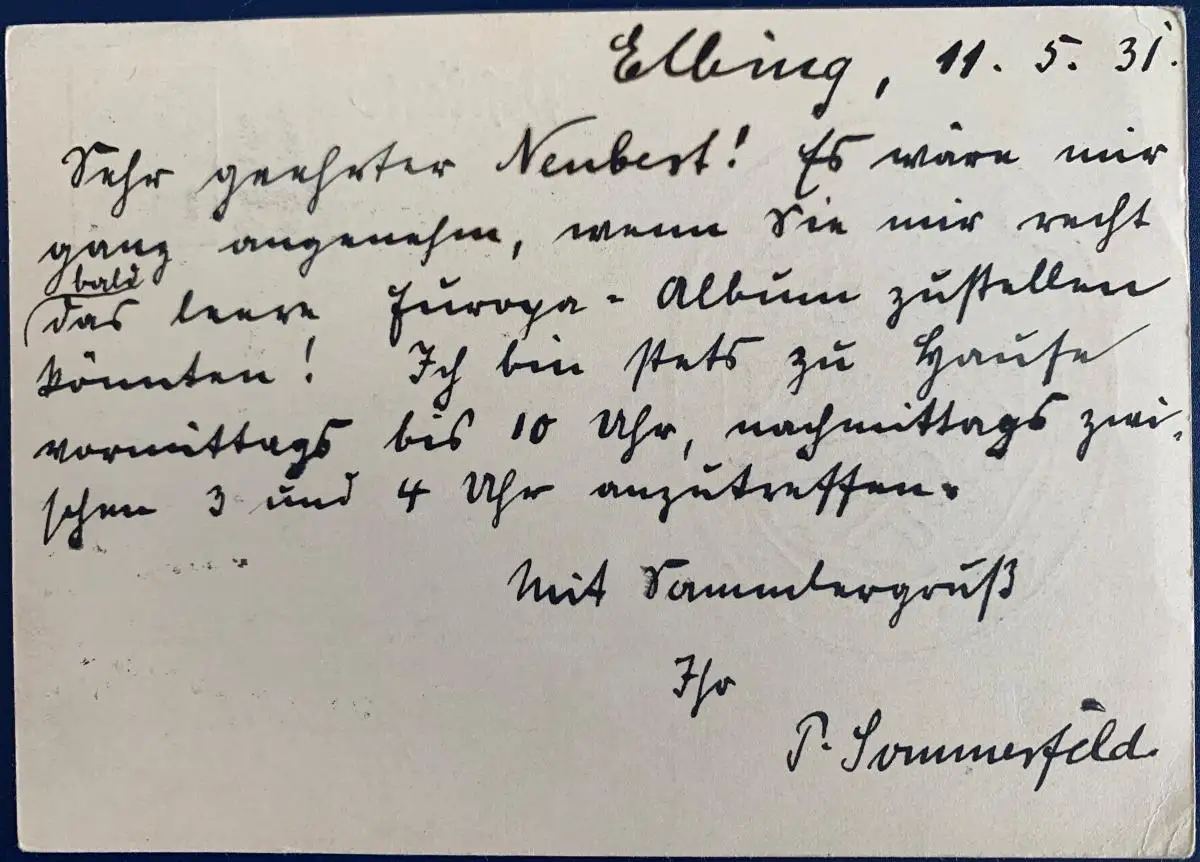 Elbing, 11. 5. 31.
Sehr geehrter Neubert! Es wäre mir
ganz angenehm, wenn Sie mir recht
bald
das leere Europa-Album zustellen
könnten! Ich bin stets zu Hause
vormittags bis 10 Uhr, nachmittags zwi-
schen 3 und 4 Uhr anzutreffen.
Mit Sammlergruß
Ihr
P. Sommerfeld.